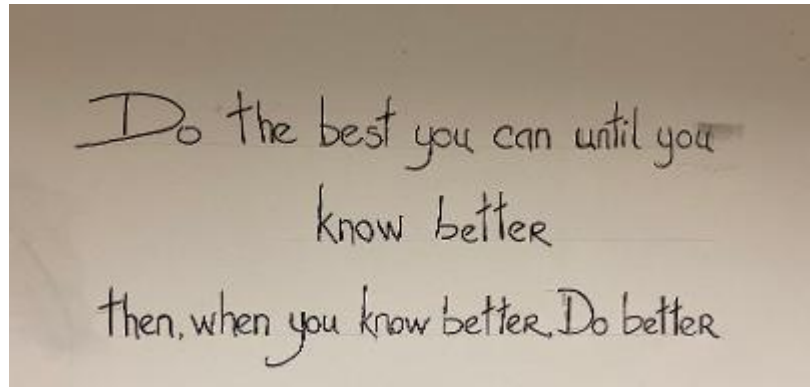 Do the best you can until you
know better
then, when you know better, Do better